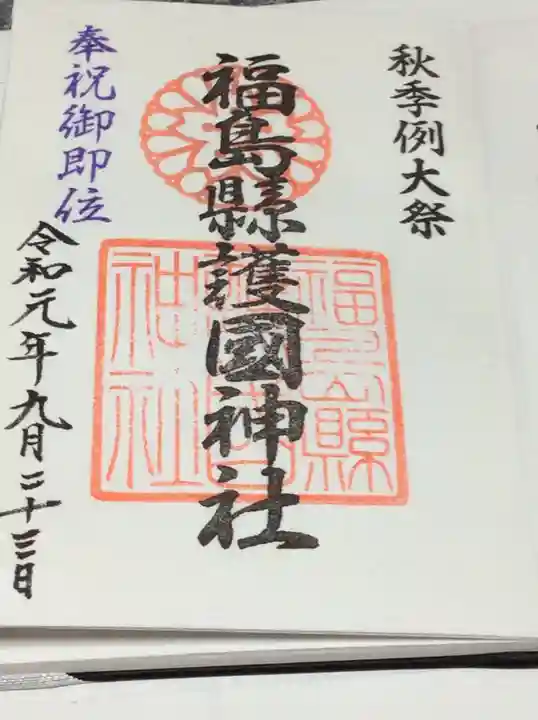 秋季例大祭
福島縣護國神社
福島縣護國神社
奉祝御即位
令和元年九月二十三日